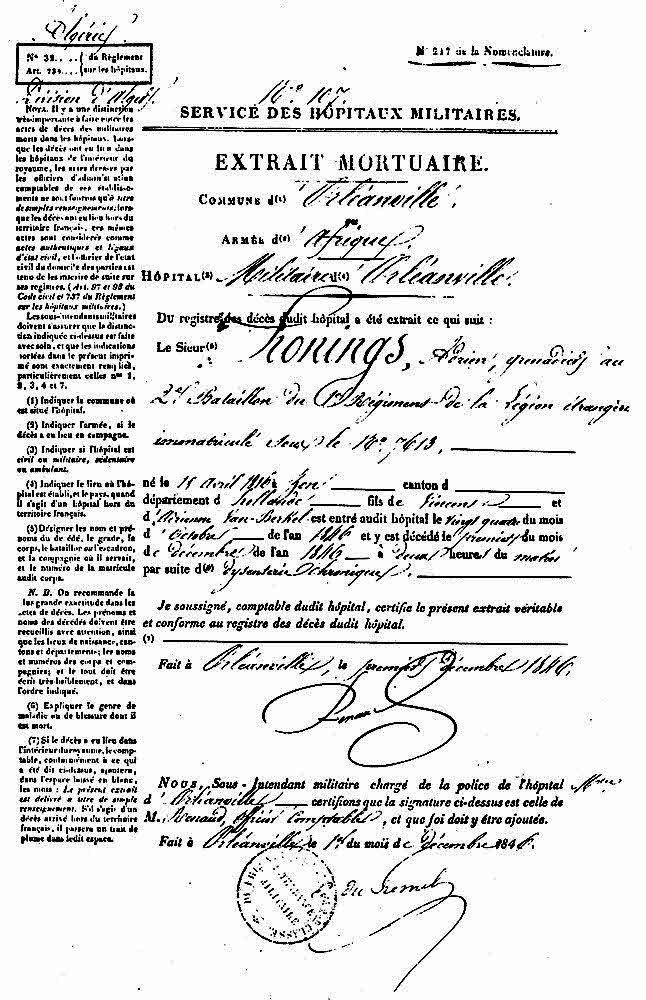 Algérie
N° 32.... du Règlement
Art. 734.... sur les hôpitaux.
Division d'Alger
NOTA. Il y a une distinction
très-importante à faire entre les
actes de décès des militaires
morts dans les hôpitaux. Lors-
que les décès ont eu lieu dans
les hôpitaux de l'intérieur du
royaume, les actes dressés par
les officiers d'administration
comptables de ces établisse-
ments ne sont fournis qu'à titre
de simples renseignements; lors-
que les décès ont eu lieu hors du
territoire français, ces mêmes
actes sont considérés comme
actes authentiques et légaux
d'état civil, et l'officier de l'état
civil du domicile des parties est
tenu de les inscrire de suite sur
ses registres. (Art. 97 et 98 du
Code civil et 737 du Règlement
sur les hôpitaux militaires.)
Les sous-intendants militaires
doivent s'assurer que la distinc-
tion indiquée ci-dessus est faite
avec soin, et que les indications
portées dans le présent impri-
mé sont exactement remplies,
particulièrement celles nos 1,
2, 3, 4 et 7.
(1) Indiquer la commune où
est situé l'hôpital.
(2) Indiquer l'armée, si le
décès a eu lieu en campagne.
(3) Indiquer si l'hôpital est
civil ou militaire, sédentaire
ou ambulant.
(4) Indiquer le lieu où l'hô-
pital est établi, et le pays, quand
il s'agit d'un hôpital hors du
territoire français.
(5) Désigner les nom et pré-
noms du décédé, le grade, le
corps, le bataillon ou l'escadron,
et la compagnie où il servait,
et le numéro de la matricule
audit corps.
N. B. On recommande la
plus grande exactitude dans les
actes de décès. Les prénoms et
noms des décédés doivent être
recueillis avec attention, ainsi
que les lieux de naissance, can-
tons et départements; les noms
et numéros des corps et com-
pagnies; et le tout doit être
écrit très-lisiblement, et dans
l'ordre indiqué.
(6) Expliquer le genre de
maladie ou de blessure dont il
est mort.
(7) Si le décès a eu lieu dans
l'intérieur du royaume, le comp-
table, conformément à ce qui
a été dit ci-dessus, ajoutera,
dans l'espace laissé en blanc,
les mots : Le présent extrait
est délivré à titre de simple
renseignement. S'il s'agit d'un
décès arrivé hors du territoire
français, il passera un trait de
plume dans ledit espace.
N° 217 de la Nomenclature.
N° 107
SERVICE DES HÔPITAUX MILITAIRES.
EXTRAIT MORTUAIRE.
COMMUNE d(1) Orléanville.
ARMÉE d(2) Afrique.
HÔPITAL(3) Militaire d(4) Orléanville.
Du registre des décès dudit hôpital a été extrait ce qui suit :
Le Sieur(5) Konings, Adrien, grenadier au
2e Bataillon du 1er Régiment de la Légion étrangère
immatriculé sous le No 7613,
né le 15 Avril 1816 à canton d
département d hollande fils de Vincent et
d'Adrienne Van-Berkel est entré audit hôpital le vingt quatre du mois
d'Octobre de l'an 1846 et y est décédé le premier du mois
de Décembre de l'an 1846 à deux heures du matin
par suite d(6) dysenterie chronique.
Je soussigné, comptable dudit hôpital, certifie le présent extrait véritable
et conforme au registre des décès dudit hôpital.
(7)
Fait à Orléanville, le premier Décembre 1846.
Renaud
NOUS, Sous-Intendant militaire chargé de la police de l'hôpital
d'Orléanville certifions que la signature ci-dessus est celle de
M. Renaud, officier Comptable, et que foi doit y être ajoutée.
Fait à Orléanville le 1er du mois de Décembre 1846.